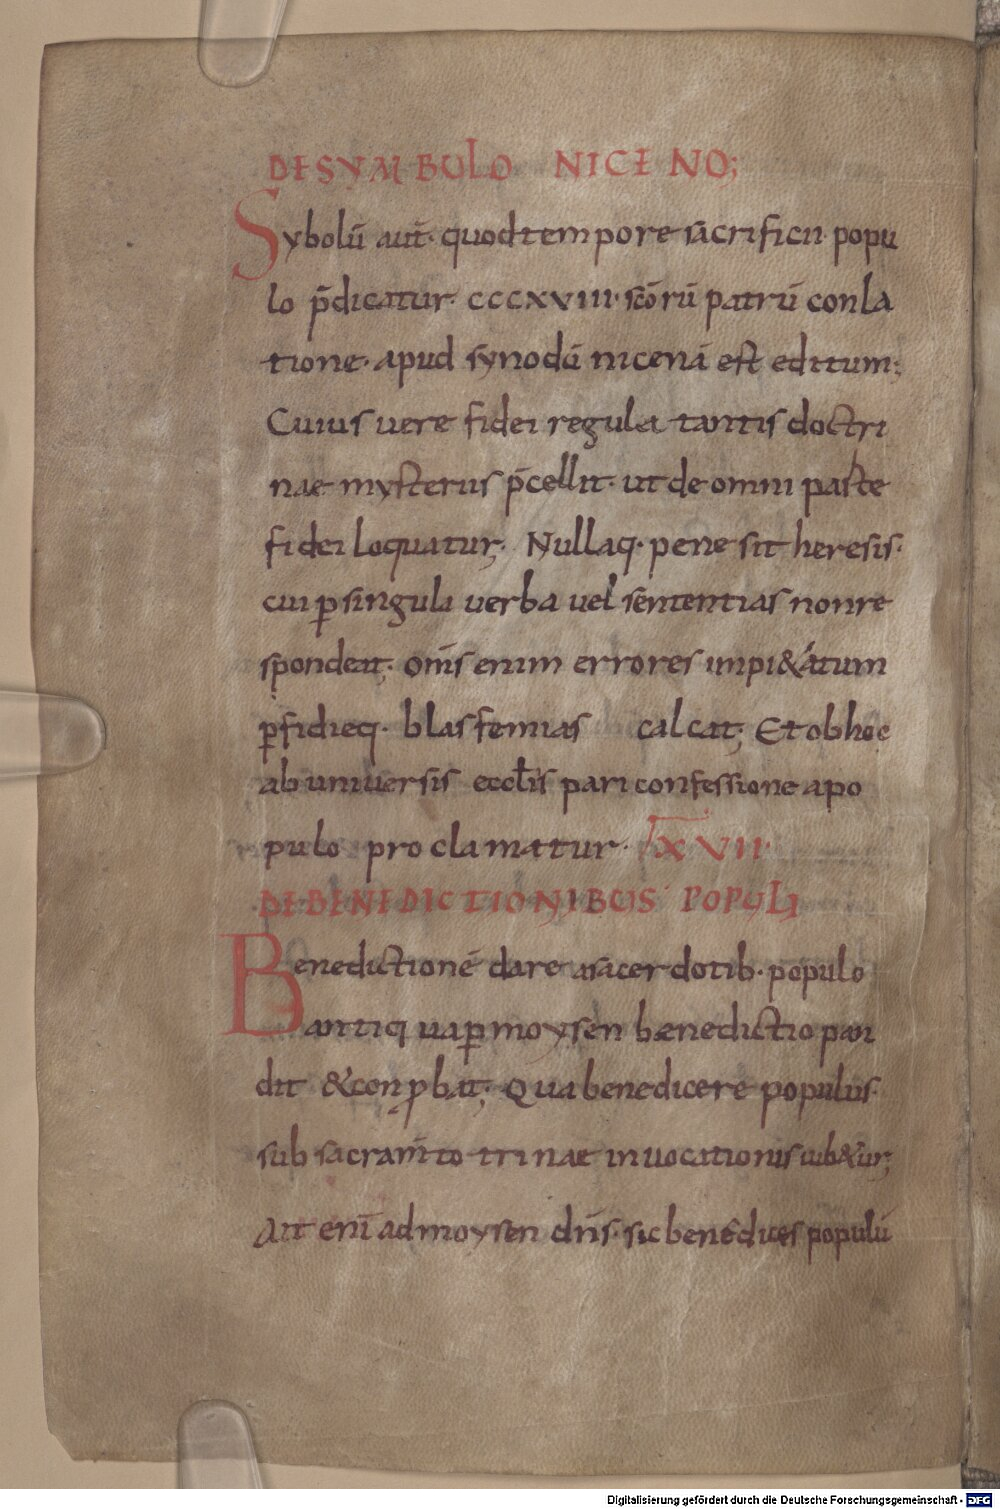 DE SYMBULO NICENO;
Sybolū aut̄· quod tempore sacrificii popu
lo p̄dicatur· CCCXVIII· scōrū patrū conla
tione· apud synodū nicenā est editum;
Cuius uere fidei regula tantis doctri
nae mysteriis p̄cellit· ut de omni paste
fidei loquatur; Nullaq· pene sit heresis·
cui ꝑ singula uerba uel sententias non re
spondeat; om̄s enim errores impi&atum
ꝑfidieq· blasfemias calcat; Et ob hoc
ab uniuersis eccl̄is pari confessione a po
pulo proclamatur· XVII·
DE BENEDICTIONIBUS POPULI
Benedictionē dare a sacerdotib· populo
antiqua ꝑ moysen benedictio pan
dit & conꝓbat; Qua benedicere populus
sub sacram̄to trinae inuocationis iub&ur;
Ait enī ad moysen dn̄s· sic benedices populū
Digitalisierung gefördert durch die Deutsche Forschungsgemeinschaft - DFG